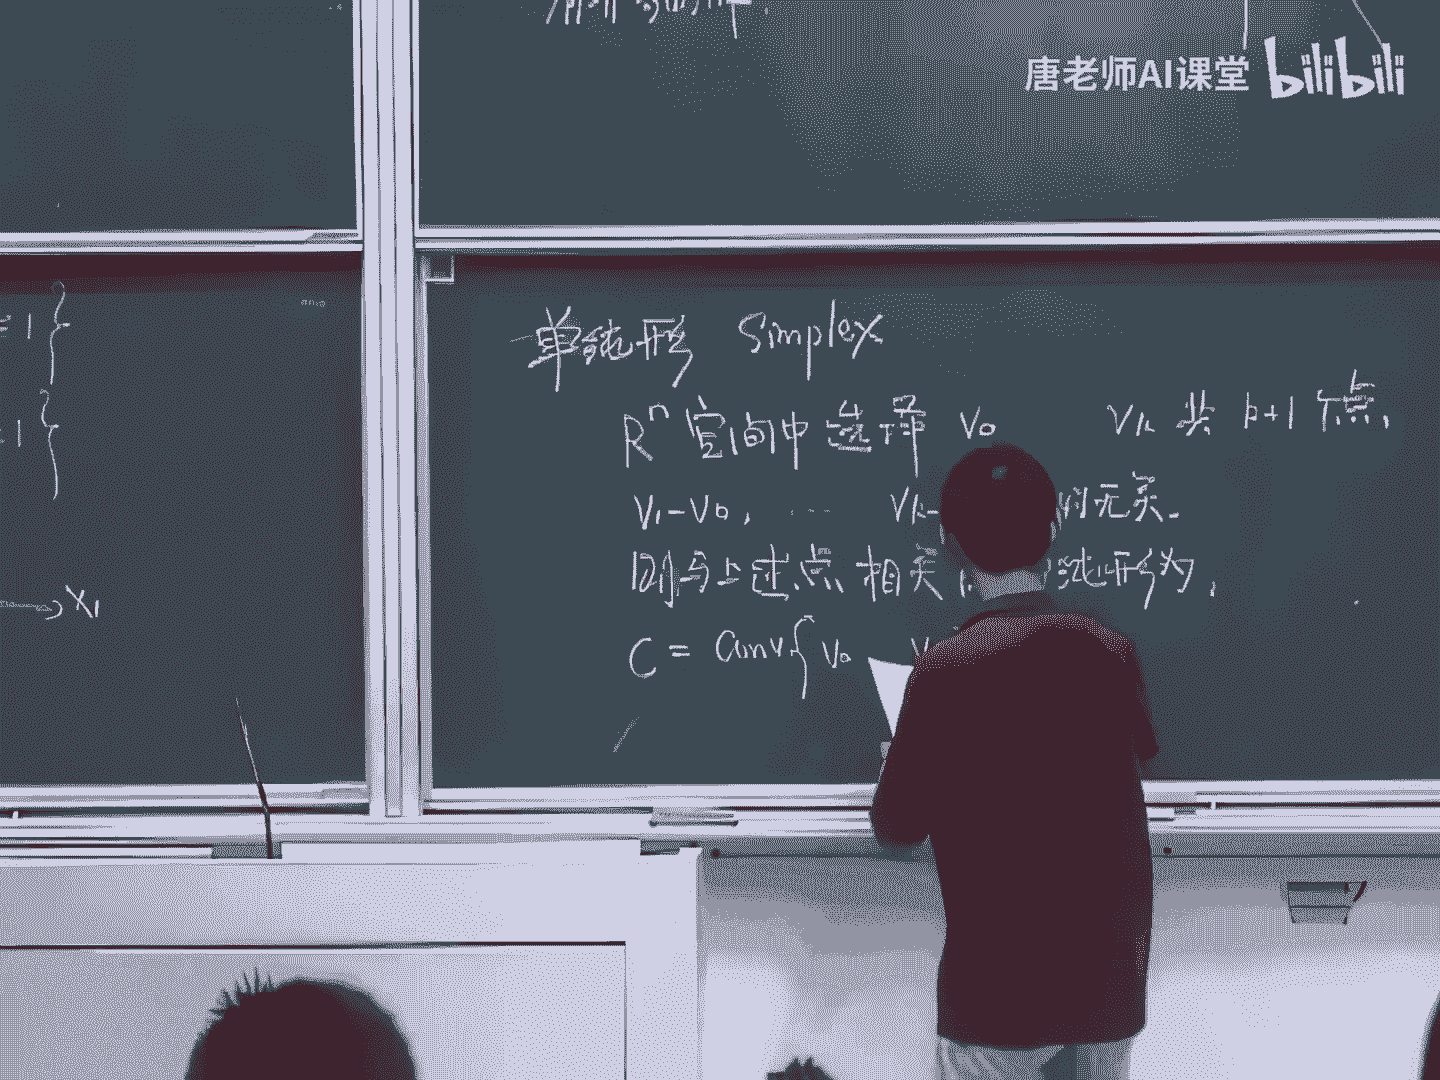 唐老师AI课堂 bilibili
= 1 }
= 1 }
→ x₁
单纯形 Simplex
Rⁿ 空间中选择 v₀ vₖ 共 k+1 个点,
v₁-v₀, ... vₖ- 无关.
则与上述点相关 纯形为,
C = Conv{ v₀